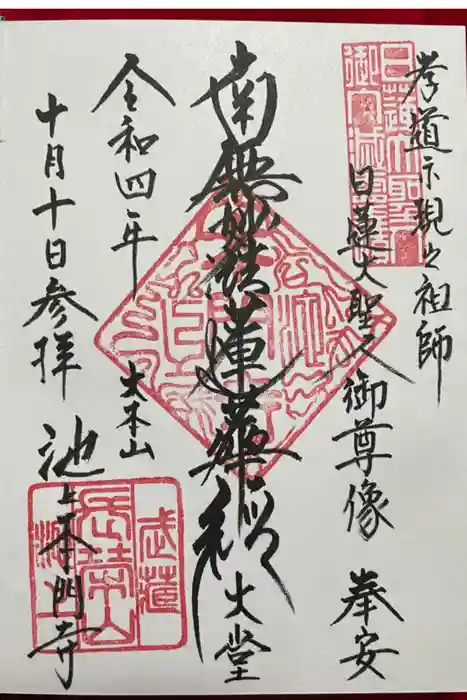 孝道示現之祖師
日蓮大聖人御尊像 奉安
南無妙法蓮華経 大堂
令和四年
十月十日参拝
大本山
池上本門寺